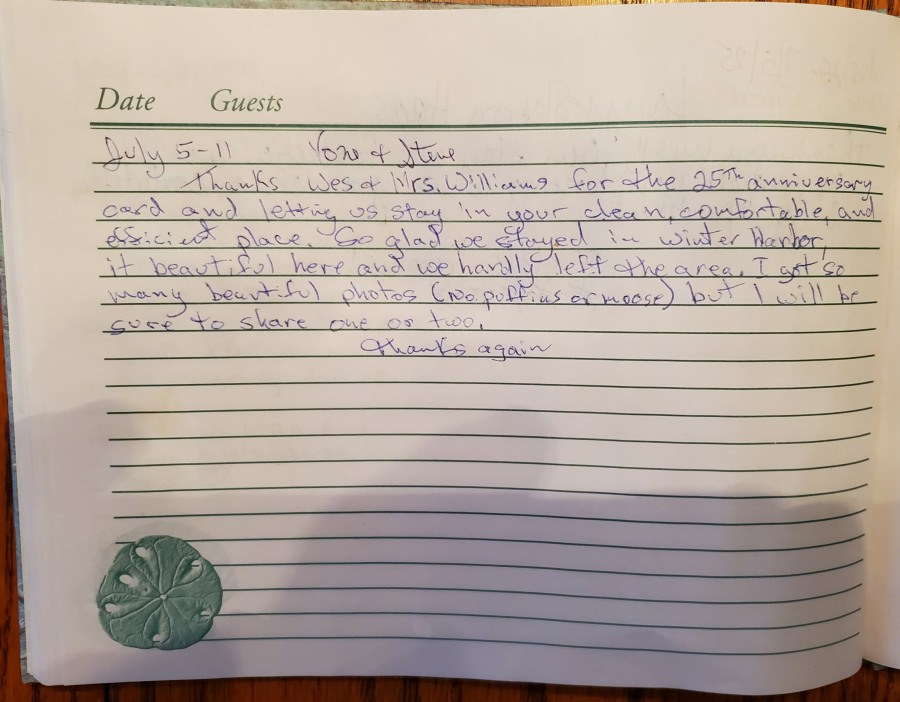 Date Guests
July 5-11 & Steve
Thanks Wes & Mrs. Williams for the 25Th anniversary
card and letting us stay in your clean, comfortable, and
efficient place. So glad we stayed in Winter Harbor,
it beautiful here and we hardly left the area. I got so
many beautiful photos (no puffins or moose) but I will be
sure to share one or two.
Thanks again